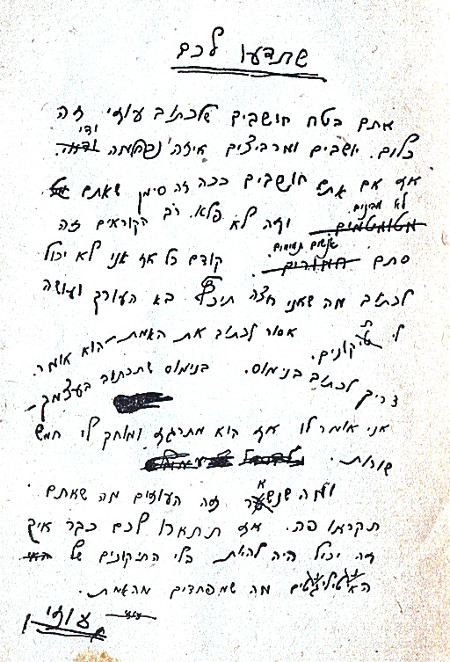 שתדעו לכם
אתם בטח חושבים שלכתוב עוזי זה
ודי
כלום. יושבים ומרביצים איזה
אז אם אתם חושבים ככה זה סימן שאתם
לא מבינים
מטומטמים וזה לא פלא. רב הקוראים זה
תמימים
סתם חמורים. קודם כל אז אני לא יכול
לכתוב מה שאני רוצה תיכף בא העורך ועושה
לי תקונים. אסור לכתוב את האמת - הוא אומר.
צריך לכתוב בנימוס. בנימוס שתכתוב בעצמך -
אני אומר לו אז הוא מתרגז ומוחק לי חמש
שורות.
ומה שנשאר זה העוזים מה שאתם
תקראו פה. אז תתארו לכם כבר איך
זה יכול היה להיות בלי התיקונים של
מה שמפחדים מהאמת.
עוזי
עוזי